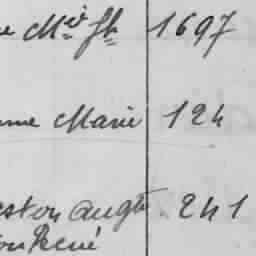 e Mie Jh 1697
nne Marie 124
eston Augte 241
on René